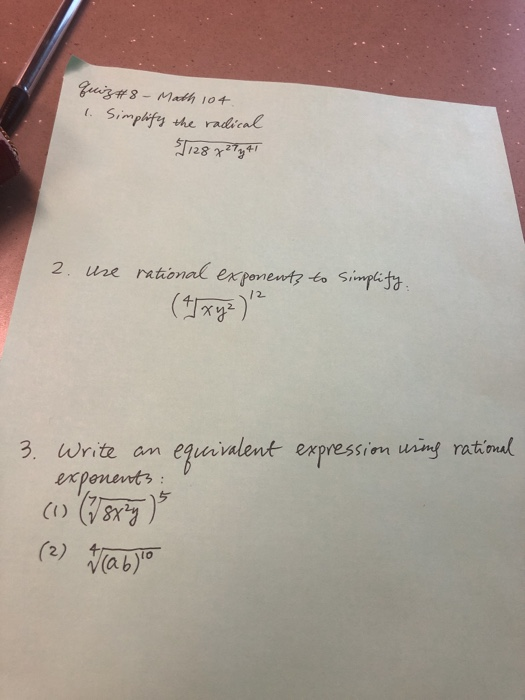 Quiz #8 - Math 104
1. Simplify the radical
⁵√(128 x²⁷y⁴¹)
2. Use rational exponents to simplify.
(⁴√(xy²))¹²
3. Write an equivalent expression using rational
exponents:
(1) (⁷√(8x²y))⁵
(2) ⁴√((ab)¹⁰)